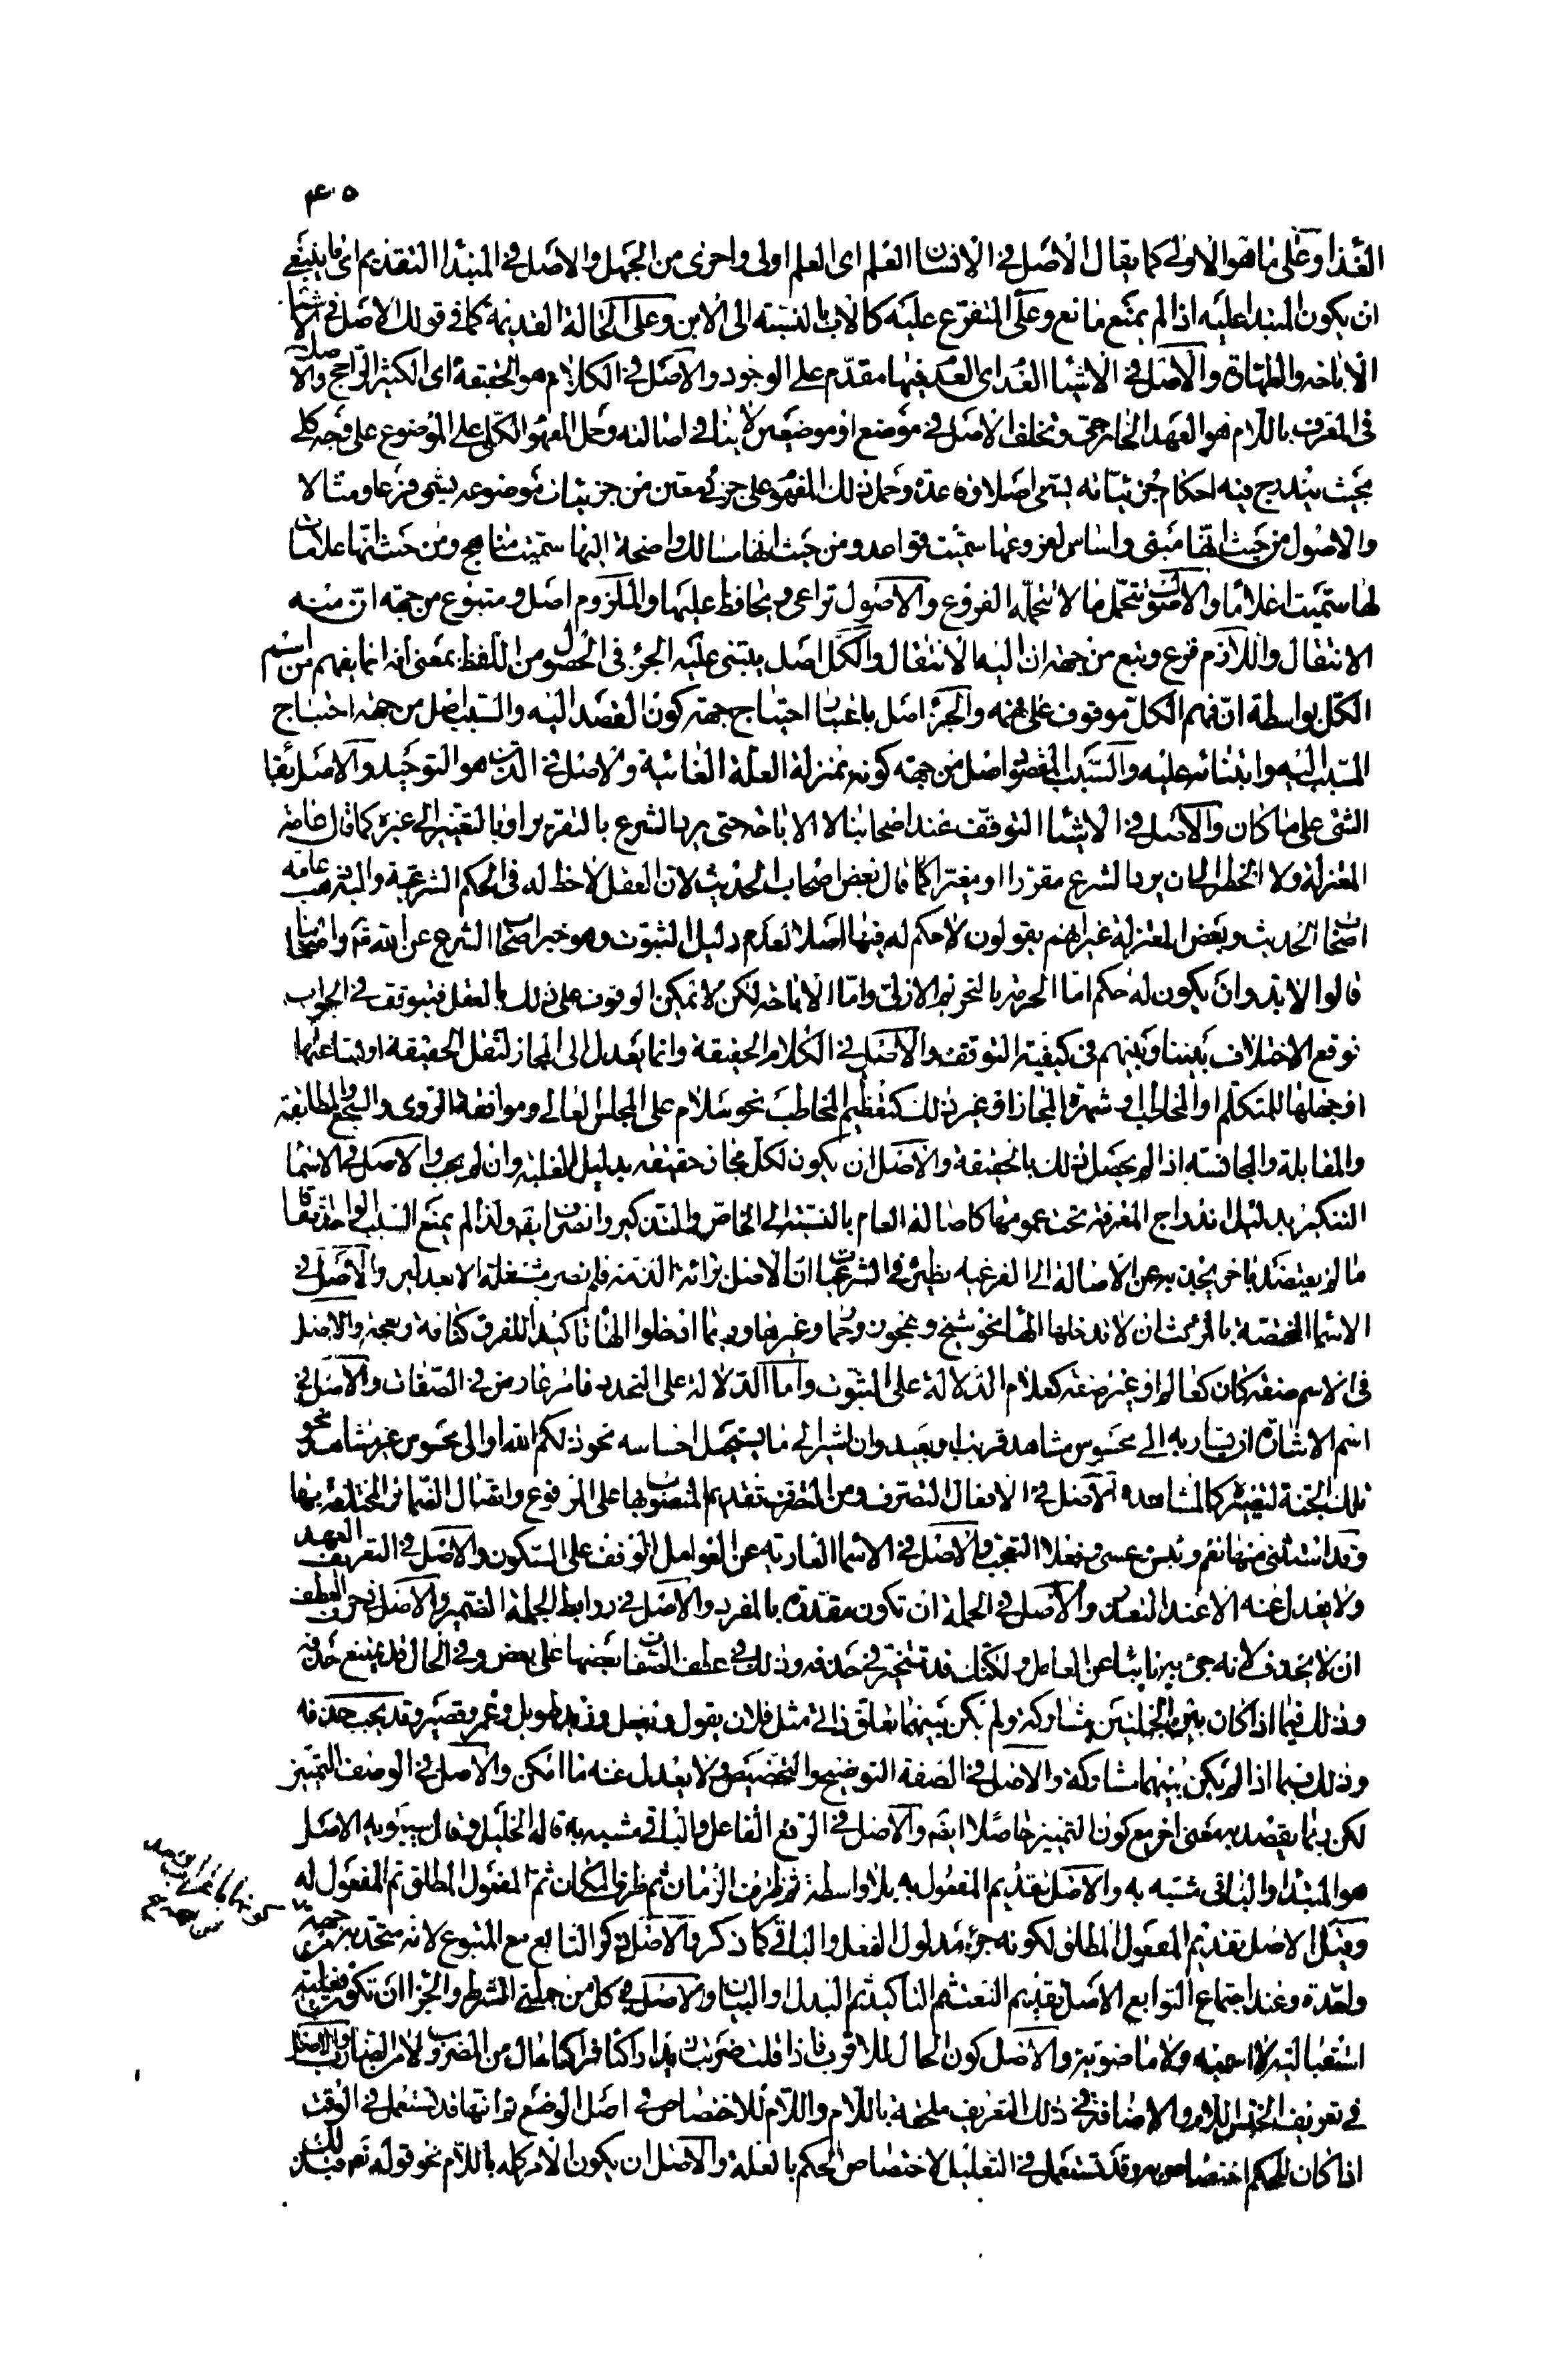 ٤٥
الغذا وعلى ما هو الاولى كما يقال الاصل فى الانسان العلم اى العلم اولى واحرى من الجهل والاصل فى المبتدا التقديم اى ما ينبغى
ان يكون المبتدا عليه اذا لم يمنع مانع وعلى المتفرع عليه كالاب بالنسبة الى الابن وعلى الحالة القديمة كما فى قولك الاصل فى الاشيا
الاباحة والطهارة والاصل فى الاشيا العدم اى العدم فيها مقدم على الوجود والاصل فى الكلام هو الحقيقة اى الكثير الراجح والاصل
فى المعرف باللام هو العهد الخارجى وتخلف الاصل فى موضع او موضعين لا ينافى اصالته وحمل المفهوم الكلى على الموضوع على وجه كلى
بحيث يندرج فيه احكام جزئياته يسمى اصلا وقاعدة وحمل ذلك المفهوم على جزئى معين من جزئيات موضوعه يسمى فرعا ومثالا
والاصول من حيث انها مبنى واساس لفروعها سميت قواعد ومن حيث انها مسالك واضحة اليها سميت مناهج ومن حيث انها علامات
لها سميت اعلاما والاصول تتحمل ما لا تتحمله الفروع والاصول تراعى ويحافظ عليها والملزوم اصل ومتبوع من جهة ان منه
الانتقال واللازم فرع وتبع من جهة ان اليه الانتقال والكل اصل يبتنى عليه الجزء فى الحصول من اللفظ بمعنى انه انما يفهم من اسم
الكل بواسطة ان فهم الكل موقوف على فهمه والجزء اصل باعتبار احتياج جهة كون القصد اليه والسبب اصل من جهة احتياج
المسبب اليه وابتنائه عليه والسبب المقصود اصل من جهة كونه بمنزلة العلة الغائية والاصل فى الدين هو التوحيد والاصل بقا
الشى على ما كان والاصل فى الاشيا التوقف عند اصحابنا لا الاباحة حتى يرد الشرع بالتقرير او بالتغيير الى غيره كما قال عامة
المعتزلة ولا الحظر الى ان يرد الشرع مقررا او مغيرا كما قال بعض اصحاب الحديث لان العقل لا حظ له فى الحكم الشرعى واليه ذهب عامة
اصحاب الحديث وبعض المعتزلة غير انهم يقولون لا حكم له فيها اصلا لعدم دليل الثبوت وهو خبر اصحاب الشرع عن الله تم واصحابنا
قالوا لا بد وان يكون له حكم اما الحرمة بالتحريم الازلى واما الاباحة لكن لا يمكن الوقوف على ذلك بالعقل فيتوقف فى الجواب
فوقع الاختلاف بيننا وبينهم فى كيفية التوقف والاصل فى الكلام الحقيقة وانما يعدل الى المجاز لثقل الحقيقة او بشاعتها
او جهلها للمتكلم او المخاطب او شهرة المجاز او غير ذلك كتعظيم المخاطب نحو سلام على المجلس العالى وموافقة الروى والسجع والمطابقة
والمقابلة والمجانسة اذا لم يحصل ذلك بالحقيقة والاصل ان يكون لكل مجاز حقيقة بدليل الغلبة وان لم يجب والاصل فى الاسما
التنكير بدليل اندراج المعرفة تحت عمومها كاصالة العام بالنسبة الى الخاص والتذكير والصرف ايضم ولذا لم يمتنع السبب الواحد اتفاقا
ما لم يعتضد باخر يجذبه عن الاصالة الى الفرعية نظيره فى الشرعيات ان الاصل براءة الذمة فلم تصر مشتغلة الا بعدلين والاصل فى
الاسما المختصة بالمؤنث ان لا تدخلها الها نحو شيخ وعجوز وحمار وغيرها وربما ادخلوا الها تاكيدا للفرق كناقة ونعجة والاصل
فى الاسم صفة كان كعالم او غير صفة كغلام الدلالة على الثبوت واما الدلالة على التجدد فامر عارض فى الصفات والاصل فى
اسم الاشارة ان يشار به الى محسوس مشاهد قريب او بعيد وان اشير الى ما يستحيل احساسه نحو ذلكم الله او الى محسوس غير مشاهد نحو
تلك الجنة لتصييره كالمشاهد والاصل فى الافعال التصرف ومن التصرف تقديم المنصوب بها على المرفوع واتصال الضمائر المختلفة بها
وقد استثنى منها نعم وبئس وعسى وفعلا التعجب والاصل فى الاسما العارية عن العوامل الوقف على السكون والاصل فى التعريف العهد
ولا يعدل عنه الا عند التعذر والاصل فى الجملة ان تكون مقدرة بالمفرد والاصل فى روابط الجملة الضمير والاصل فى حرف العطف
ان لا يحذف لانه جئ به نائبا عن العامل ولكنك قد تتخير فى حذفه وذلك فى عطف الصفات بعضها على بعض وفى الحال قد يمتنع حذفه
وذلك فيما اذا كان بين الجملتين مشاركة ولم يكن بينهما تعلق ذاتى مثل فلان يقول ويفعل وزيد طويل وعمرو قصير وقد يجب حذفه
وذلك فيما اذا لم يكن بينهما مشاركة والاصل فى الصفة التوضيح والتخصيص ولا يعدل عنه ما امكن والاصل فى الوصف التمييز
لكن ربما يقصد به معنى اخر مع كون التمييز حاصلا ايضم والاصل فى الرفع الفاعل والباقى مشبه به قاله الخليل وقال سيبويه الاصل
هو المبتدا والباقى مشبه به والاصل تقديم المفعول به بلا واسطة ثم ظرف الزمان ثم ظرف المكان ثم المفعول المطلق ثم المفعول له
وقيل الاصل تقديم المفعول المطلق لكونه جزء مدلول الفعل والباقى كما ذكر والاصل ذكر التابع مع المتبوع لانه متحد به من جهة
واحدة وعند اجتماع التوابع الاصل تقديم النعت ثم التاكيد ثم البدل او البيان والاصل فى كل من جملتى الشرط والجزا ان تكون فعلية
استقبالية لا اسمية ولا ماضوية والاصل كون الحال للاقرب فاذا قلت ضربت زيدا راكبا فراكبا حال من المضروب لا من الضارب والاصل
فى تعريف الجنس اللام والاضافة فى ذلك التعريف ملحقة باللام واللام للاختصاص فى اصل الوضع ثم انها قد تستعمل فى الوقت
اذا كان للحكم اختصاص به وقد تستعمل فى التعليل لاختصاص الحكم بالعلة والاصل ان يكون الامر كله باللام نحو قوله تع فبذلك